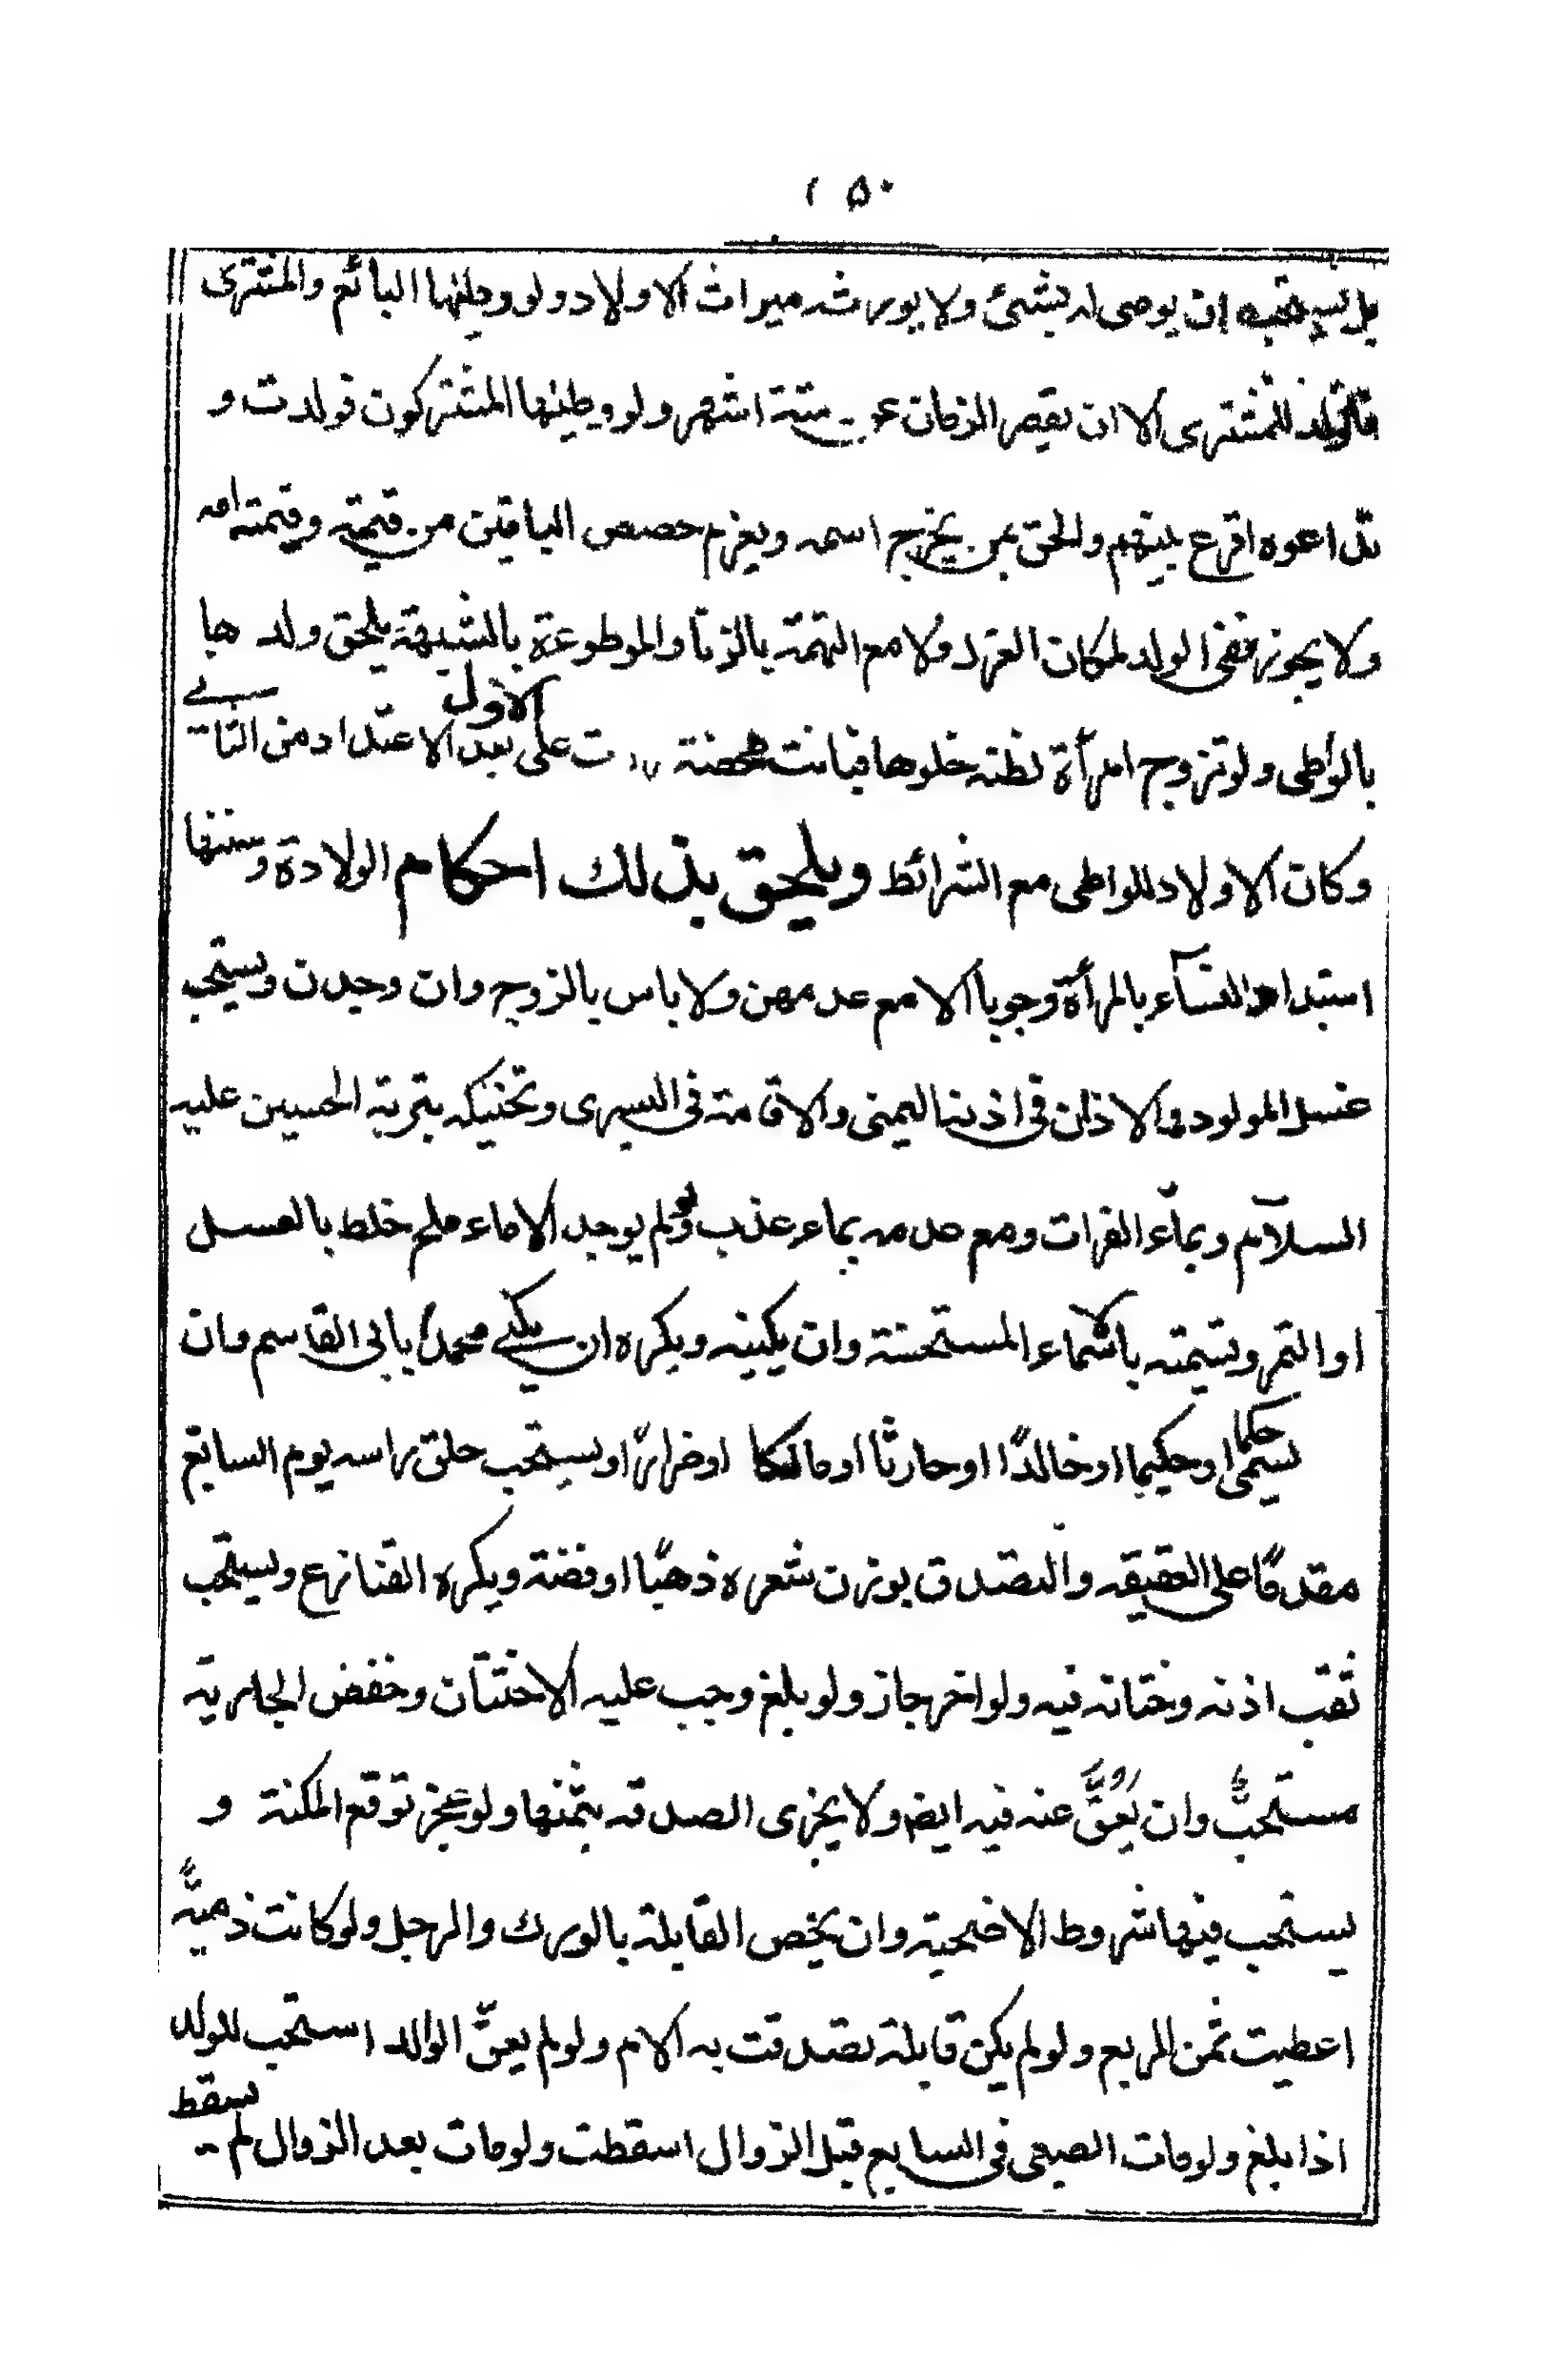 ١٥٠
بل يستحب ان يوصى له بشئ ولا يورثه ميراث الاولاد ولو وطئها البائع والمشترى
فالولد للمشترى الا ان يقصر الزمان عن ستة اشهر ولو وطئها المشتركون فولدت و
تداعوه اقرع بينهم والحق بمن يخرج اسمه ويغرم حصص الباقين من قيمته وقيمته امه
ولا يجوز نفى الولد لمكان العزل ولا مع التهمة بالزنا والموطوءة بالشبهة يلحق ولدها
بالواطى ولو تزوج امرأة لظنه خلوها فبانت محصنة ردت على الاول بعد الاعتداد من الثانى
وكان الاولاد للواطى مع الشرائط ويلحق بذلك احكام الولادة وسننها
استبداد النساء بالمرأة وجوبا الا مع عدمهن ولا باس بالزوج وان وجدن ويستحب
غسل المولود والاذان فى اذنه اليمنى والاقامة فى اليسرى وتحنيكه بتربة الحسين عليه
السلام وبماء الفرات ومع عدمه بماء عذب ولو لم يوجد الا ماء ملح خلط بالعسل
او التمر وتسميته بالاسماء المستحسنة وان يكنيه ويكره ان يكنى محمداً بابى القاسم وان
يسمى حكما او حكيما او خالدًا او حارثا او مالكا او ضرارًا ويستحب حلق راسه يوم السابع
مقدمًا على العقيقه والتصدق بوزن شعره ذهبًا او فضة ويكره القنازع ويستحب
ثقب اذنه وختانه فيه ولو اخر جاز ولو بلغ وجب عليه الاختتان وخفض الجارية
مستحبٌّ وان يُعَقَّ عنه فيه ايضا ولا يجزى الصدقه بثمنها ولو عجز توقع المكنة و
يستحب فيها شروط الاضحية وان يخص القابلة بالورك والرجل ولو كانت ذميةً
اعطيت ثمن الربع ولو لم يكن قابلة تصدقت به الام ولو لم يعقّ الوالد استحب للولد
اذا بلغ ولو مات الصبى فى السابع قبل الزوال اسقطت ولو مات بعد الزوال لم يسقط